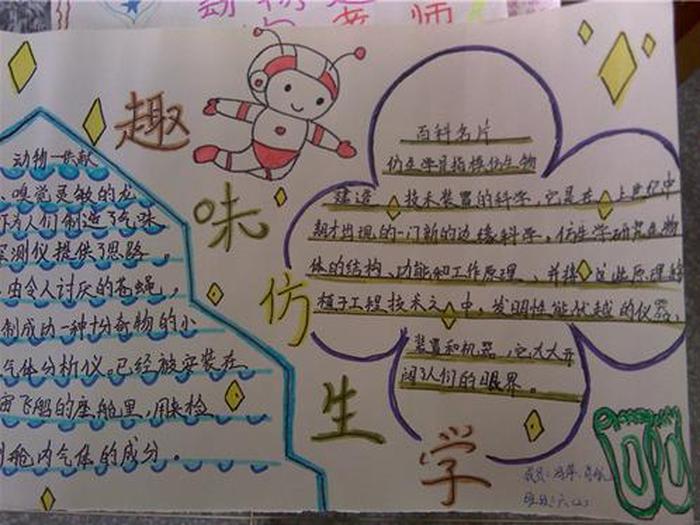 动物 老师
趣
味
仿
生
学
动物的贡献
嗅觉灵敏的龙
为人们制造了气味
探测仪提供了思路。
由令人讨厌的苍蝇,
制成功一种十分奇物的小
气体分析仪。已经被安装在
宙飞船的座舱里,用来检
舱内气体的成分。
百科名片
仿生学是指模仿生物
建造 技术装置的科学,它是在 上世纪中
期才出现的一门新的边缘科学,仿生学研究生物
体的结构、功能和工作原理、并将 这些原理移
植于工程技术之 中,发明性能优越的仪器、
装置和机器,它大大开
阔了人们的眼界。
成员:
班级:六(2)